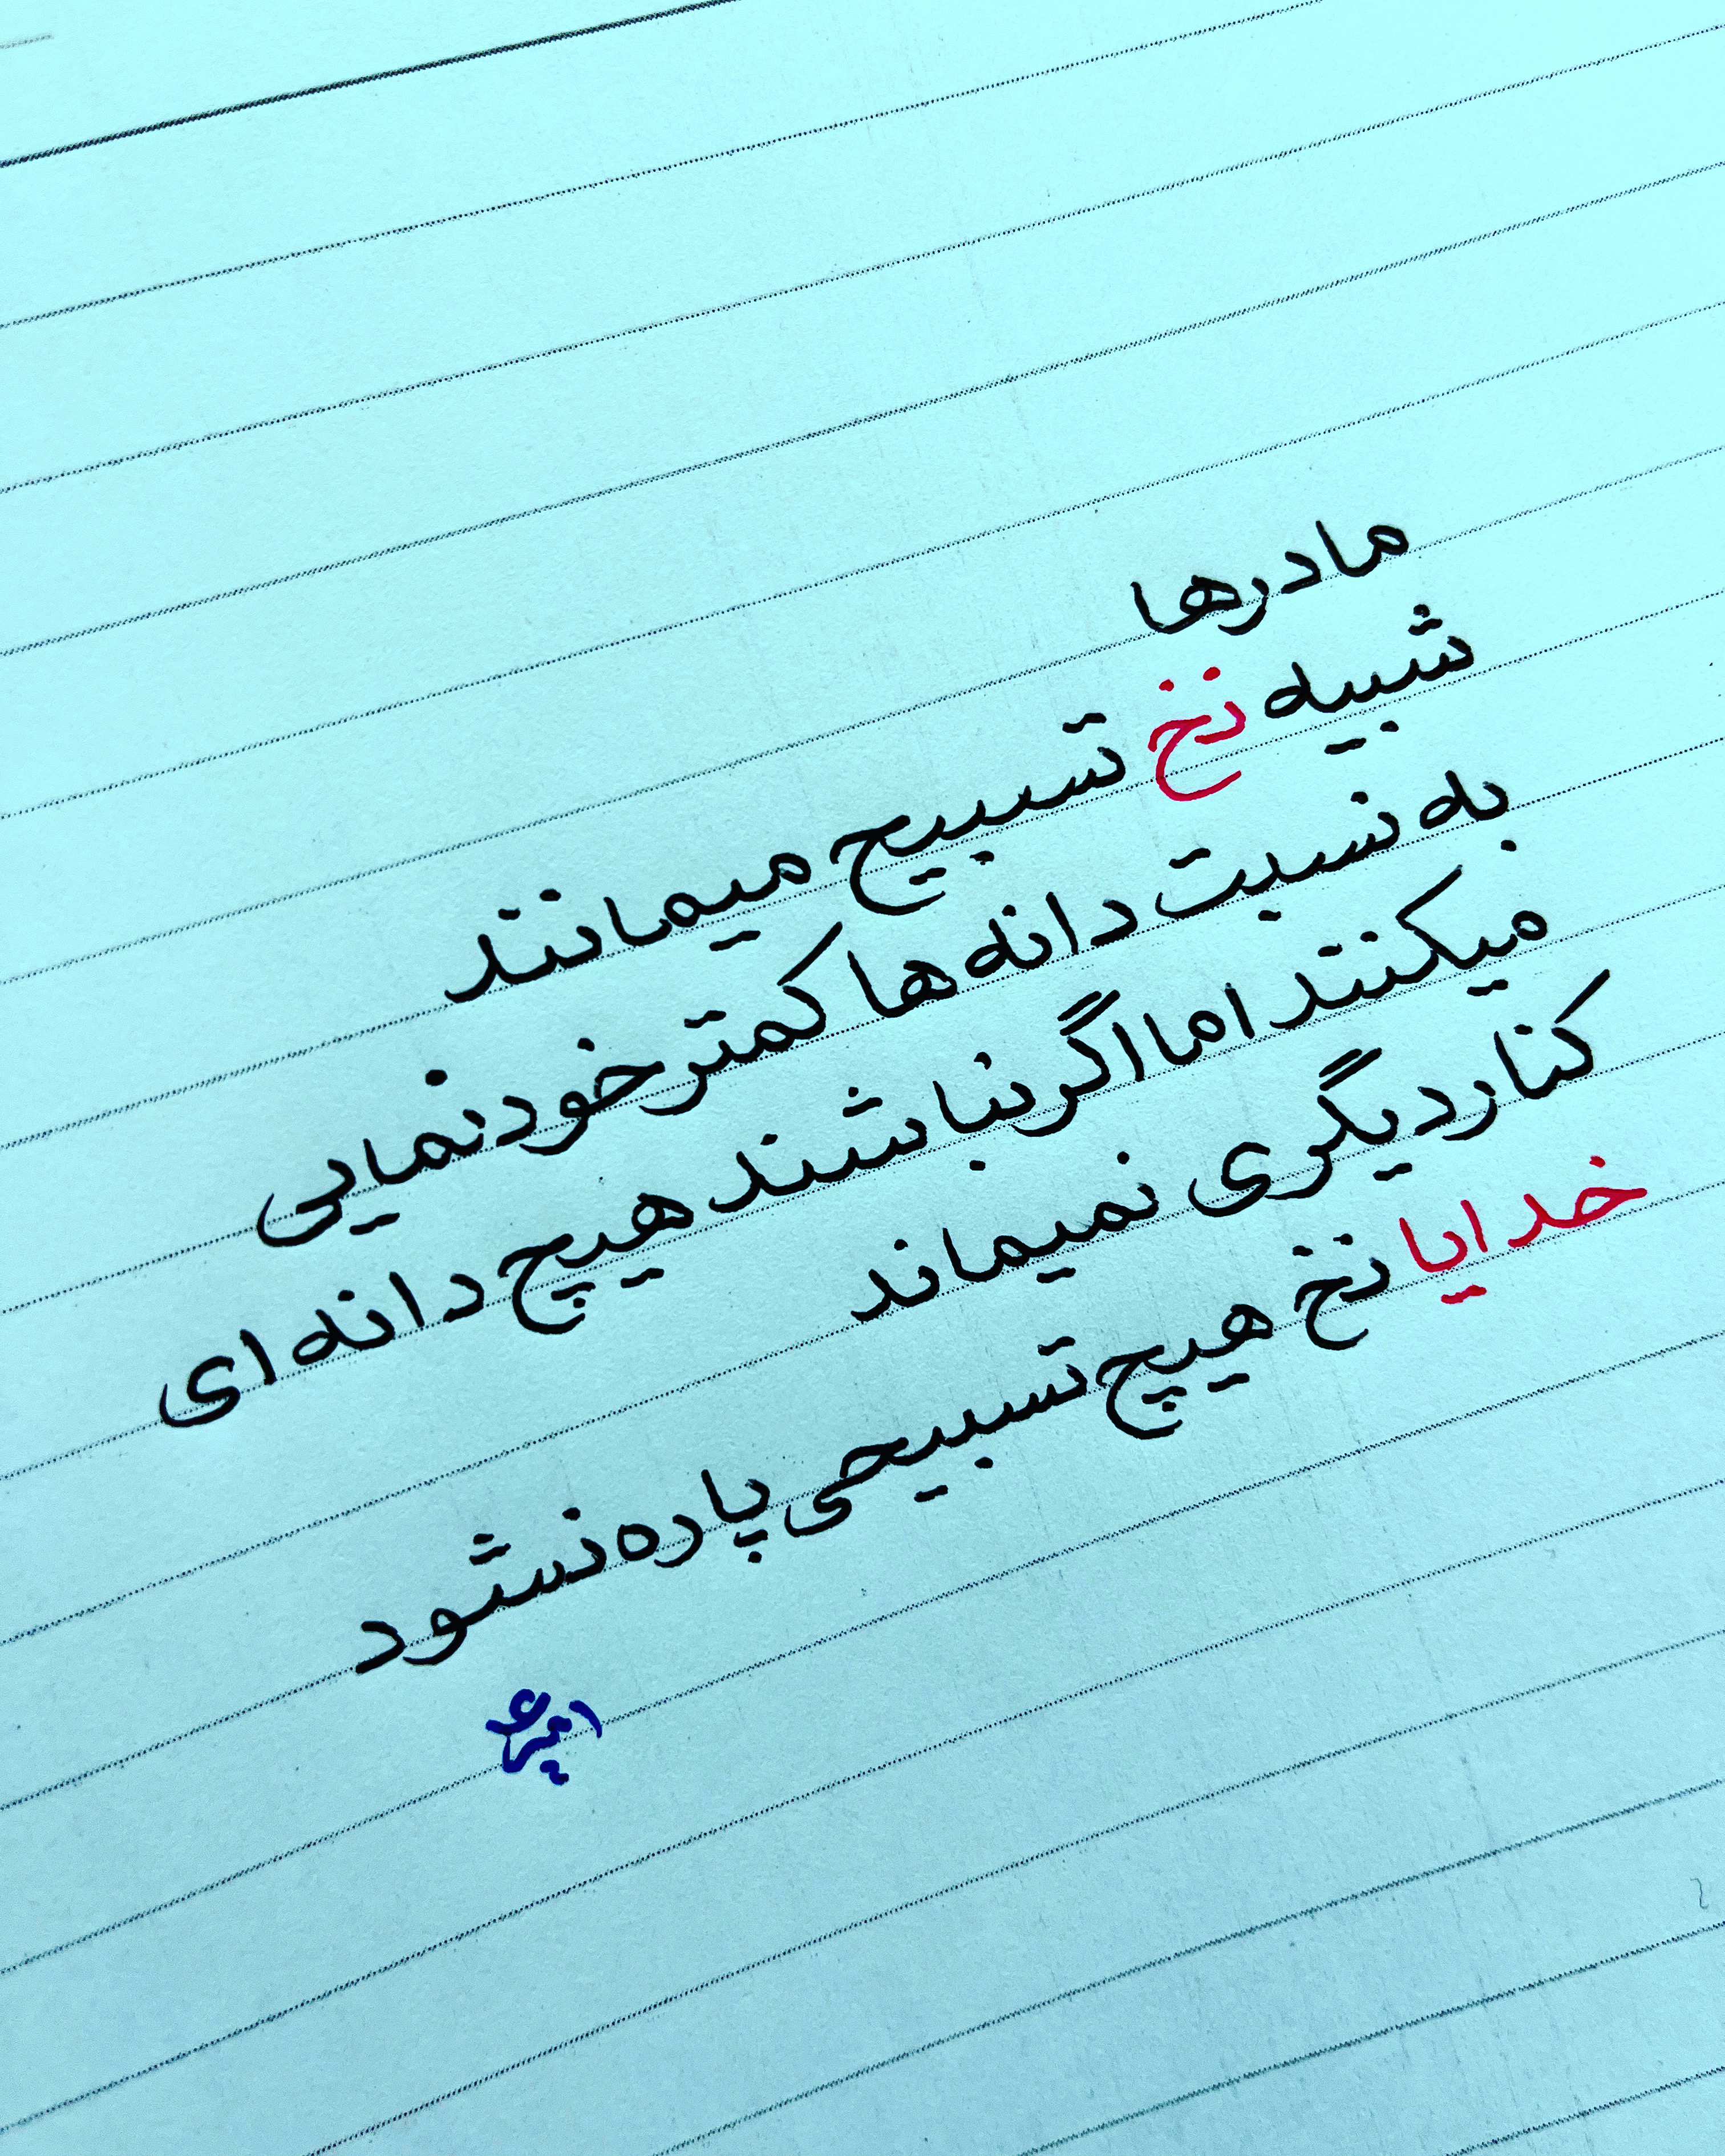 مادرها
شبیه نخ تسبیح میمانند
به نسبت دانه ها کمتر خودنمایی
میکنند اما اگر نباشند هیچ دانه ای
کنار دیگری نمیماند
خدایا نخ هیچ تسبیحی پاره نشود